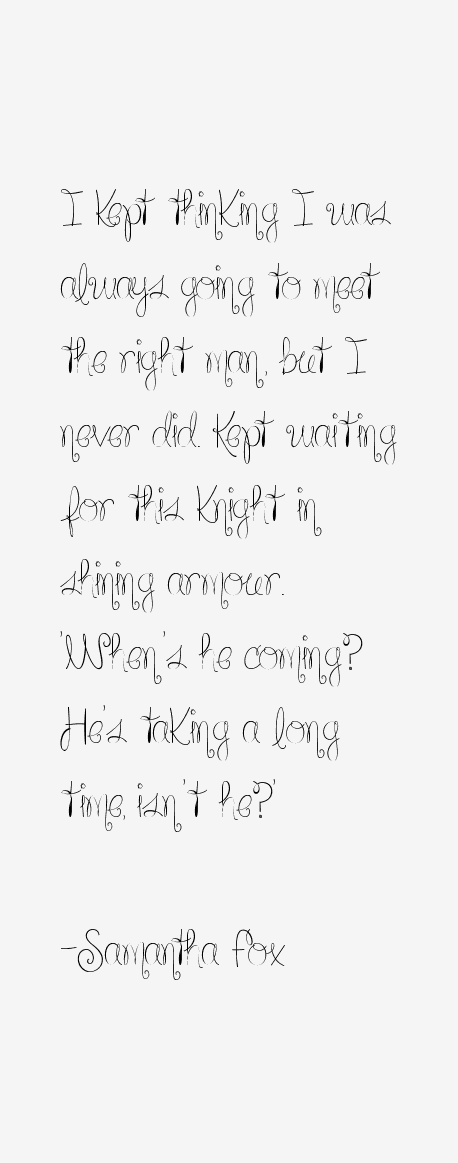 I kept thinking I was
always going to meet
the right man, but I
never did. Kept waiting
for this knight in
shining armour.
'When's he coming?
He's taking a long
time, isn't he?'
-Samantha Fox